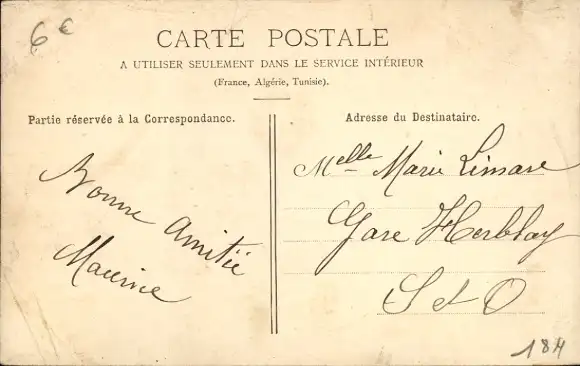 6 €
CARTE POSTALE
A UTILISER SEULEMENT DANS LE SERVICE INTÉRIEUR
(France, Algérie, Tunisie).
Partie réservée à la Correspondance.
Bonne Amitié
Maurice
Adresse du Destinataire.
Melle Marie Limare
Gare Herblay
S et O
184